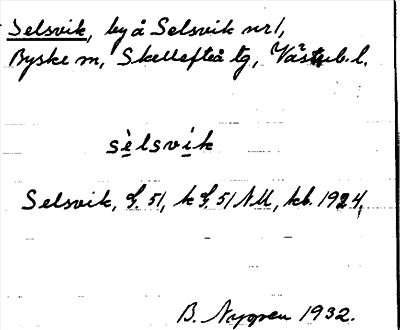 Selsvik, by å Selsvik nr 1,
Byske sn, Skellefteå tg, Västerb. l.
sèlsvik
Selsvik, G. 51, k G. 51 NU, kb. 1924,
B. Nygren 1932.